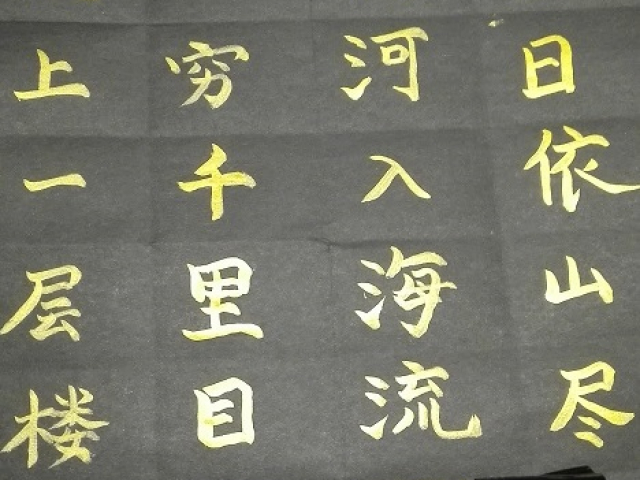 日依山尽
河入海流
穷千里目
上一层楼